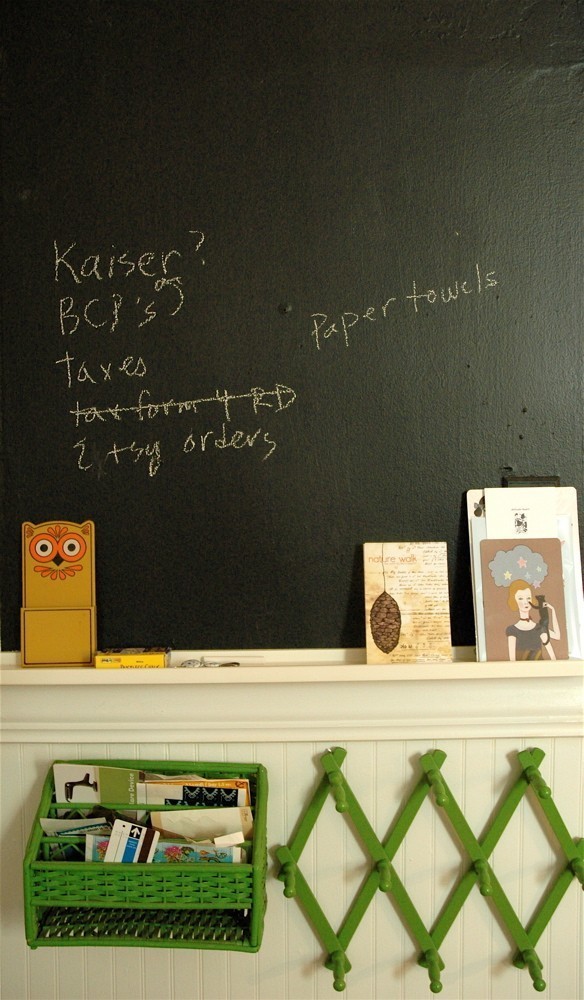 Kaiser?
BCP's
taxes
tax form 4 RD
Etsy orders
Paper towels
nature walk